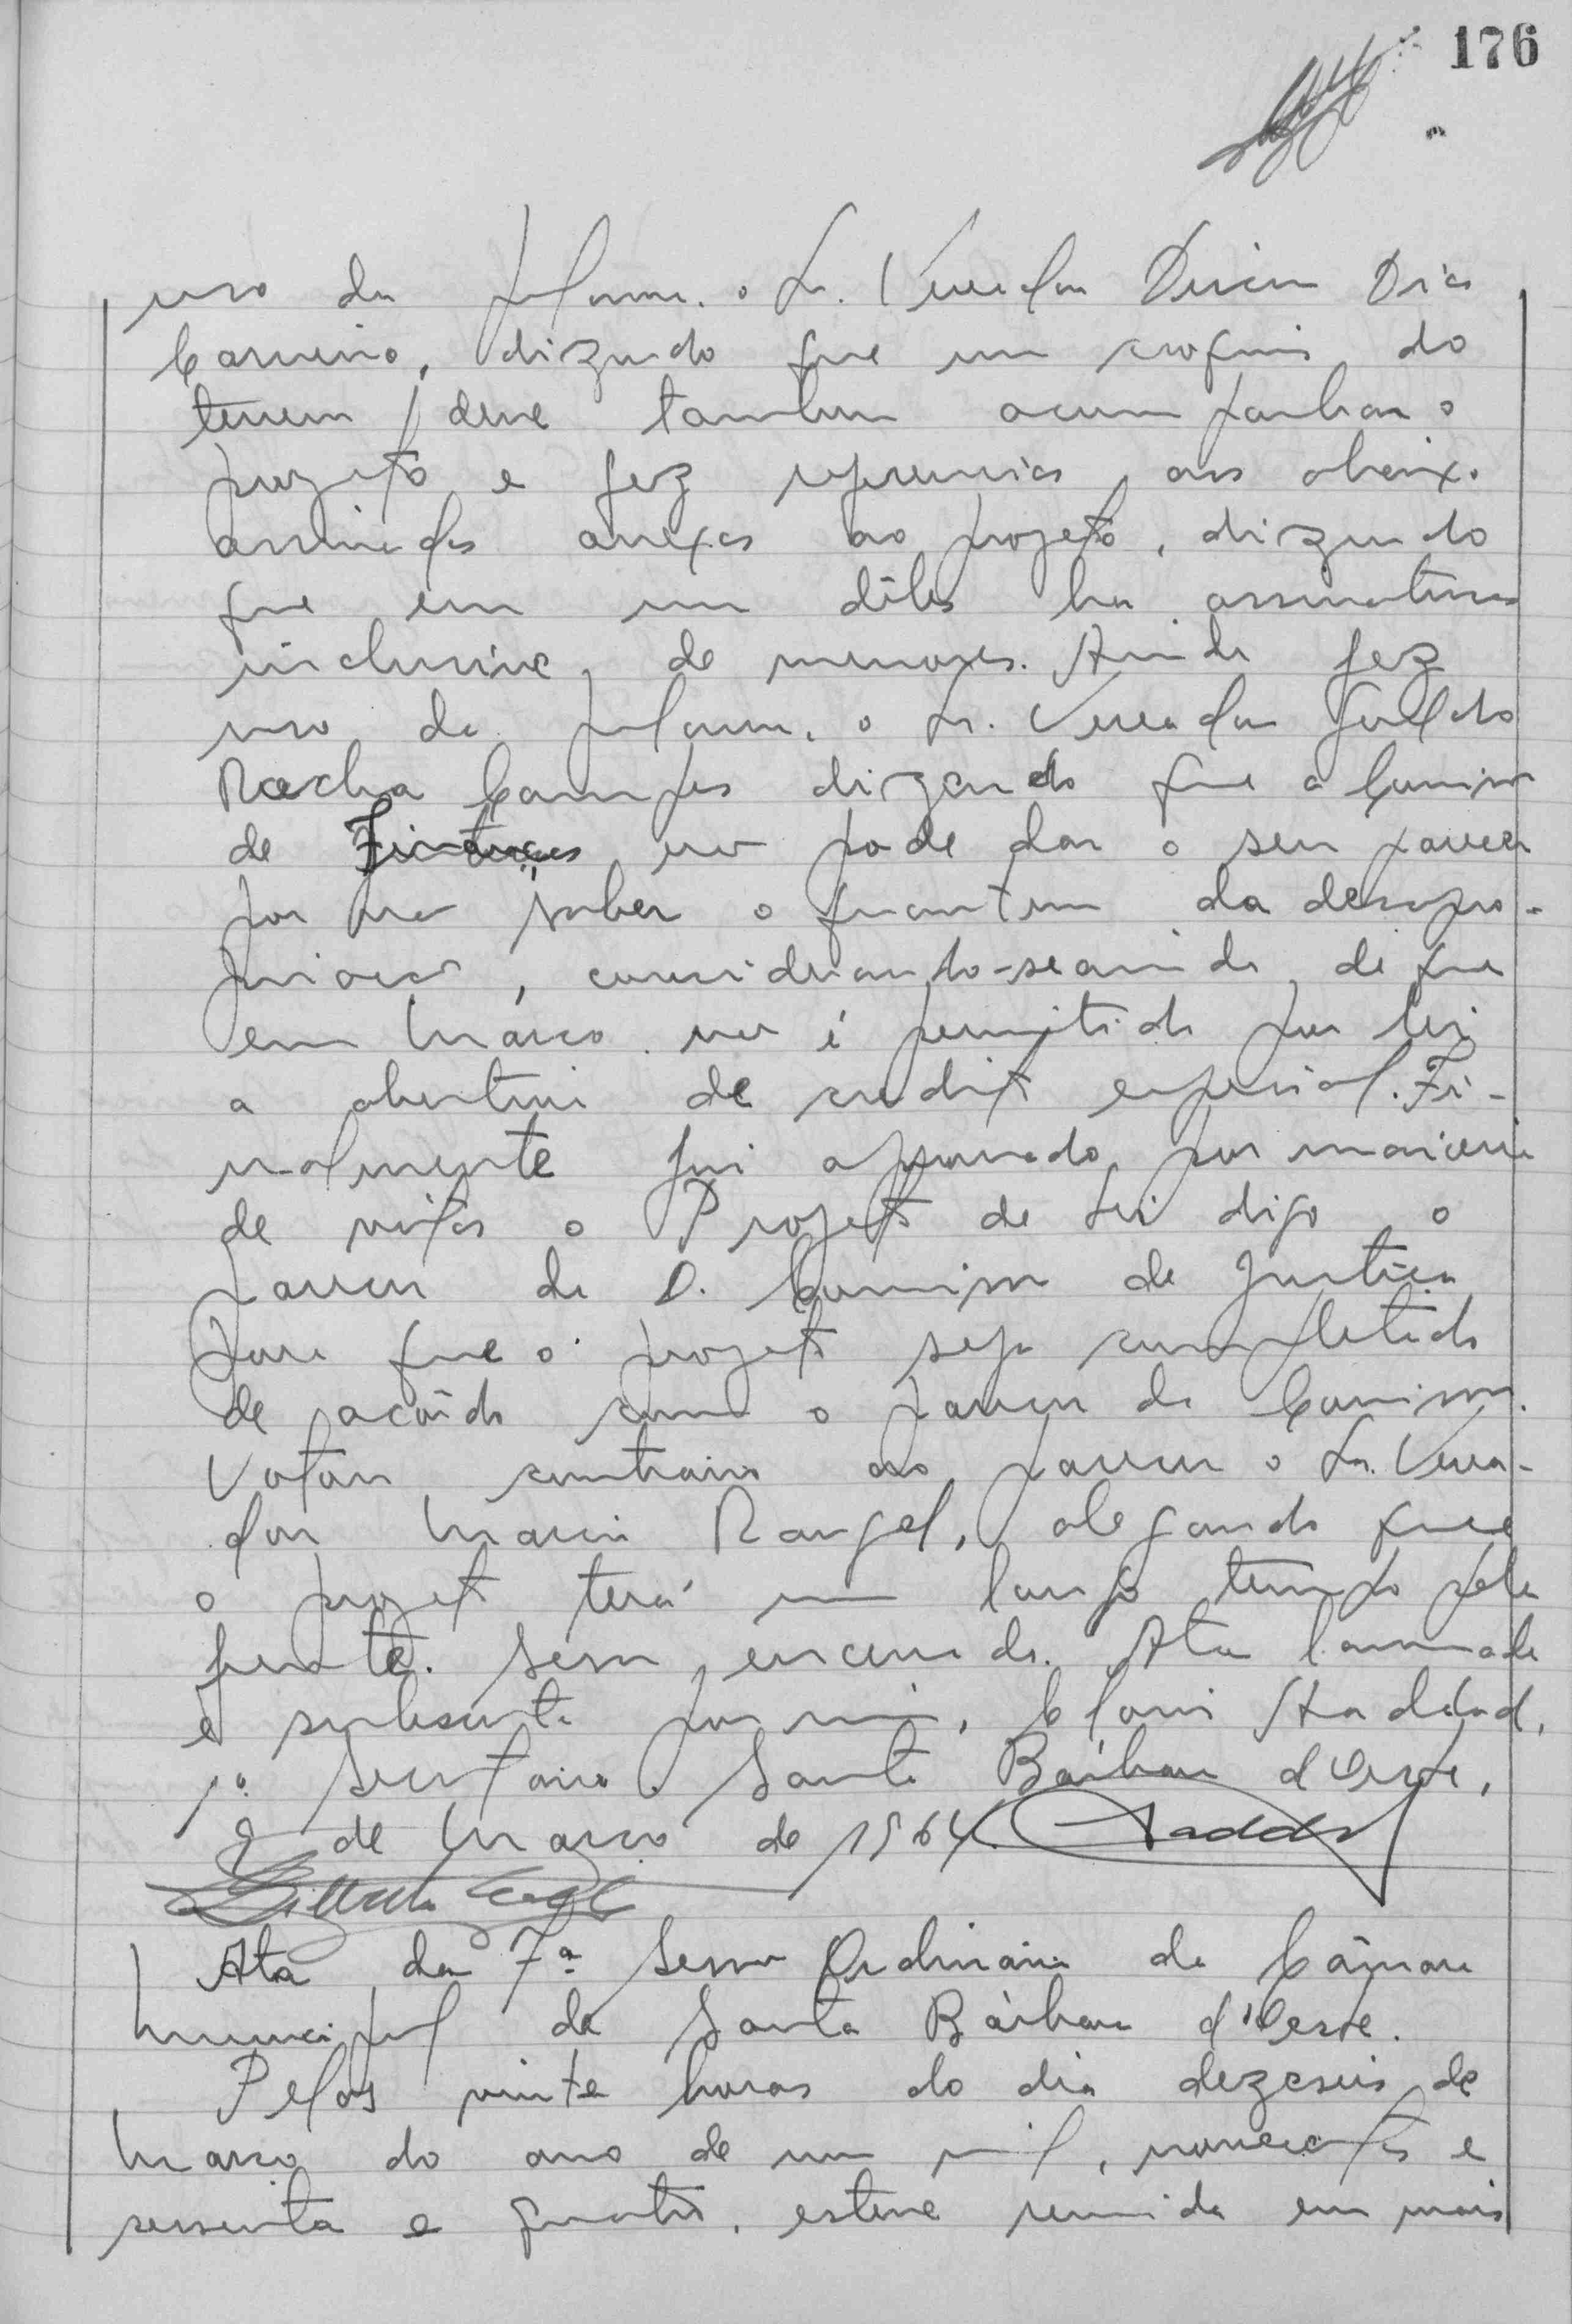 176
uso da palavra. o Sr. Vereador Dirceu Dias
Carneiro, dizendo que um croquis do
terreno deve tambem acompanhar o
projeto e fez referencias aos abaixo
assinados anexos ao projeto, dizendo
que em um dêles ha assinaturas
inclusive, de menores. Ainda fez
uso da palavra, o Sr. Vereador
Rocha Campos dizendo que a Comissão
de Finanças não pode dar o seu parecer
por não saber o quantum da desapro-
priação, considerando-se ainda de que
em Março não é permitido por lei
a abertura de credito especial. Fi-
nalmente foi aprovado por maioria
de votos o Projeto de Lei digo o
parecer da D. Comissão de Justiça
para que o projeto seja completado
de acôrdo com o parecer da Comissão.
Votou contrario ao parecer o Sr. Verea-
dor Mario Rangel, alegando que
o projeto terá um longo tempo pela
frente. Sessão encerrada. Ata lavrada
e subscrita por mim, Haddad,
1º Secretario. Santa Bárbara d'Oeste,
9 de Março de 1964.
Ata da 7ª Sessão Ordinaria da Câmara
Municipal de Santa Bárbara d'Oeste.
Pelas vinte horas do dia dezeseis de
Março do ano de um mil, novecentos e
sessenta e quatro, esteve reunida em mais